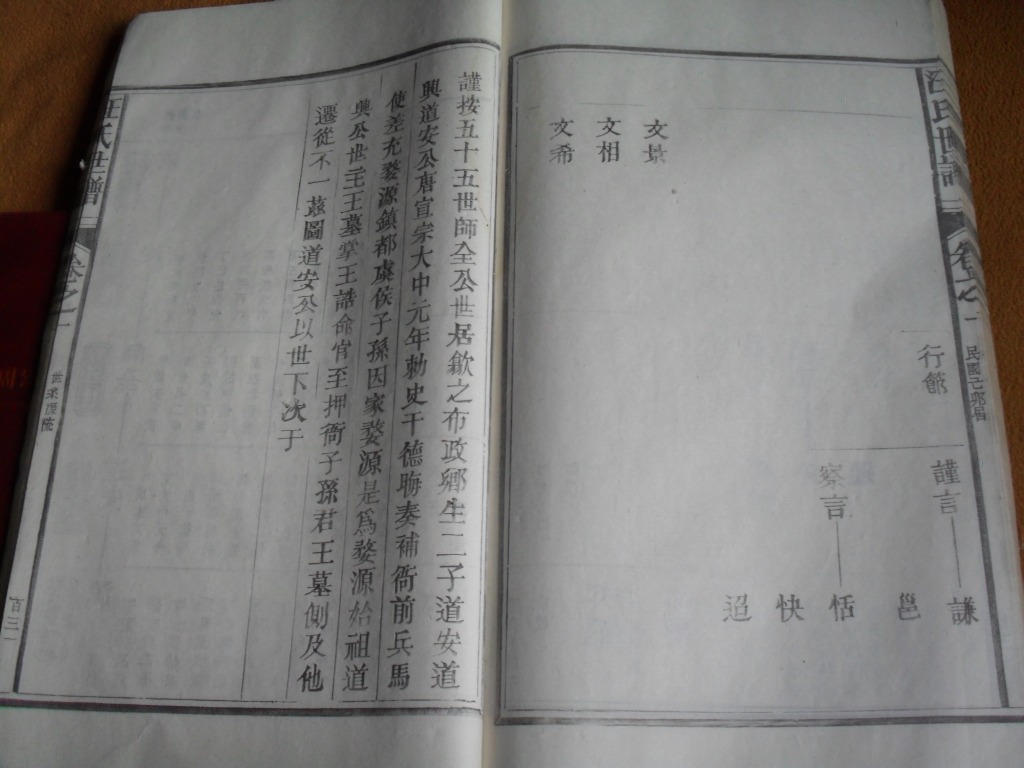 汪氏世譜
卷之一
民國己卯
行節
謹言
謙
邕
察言
恬
快
迢
文景
文相
文希
謹按五十五世師全公世居歙之布政鄉生二子道安道
興道安公唐宣宗大中元年勅史干德晦奏補衙前兵馬
使差充婺源鎮都虞侯子孫因家婺源是爲婺源始祖道
興公世王墓掌王誥命官至押衙子孫君王墓側及他
遷徙不一茲圖道安公以世下次于
汪氏世譜
卷之一
百三